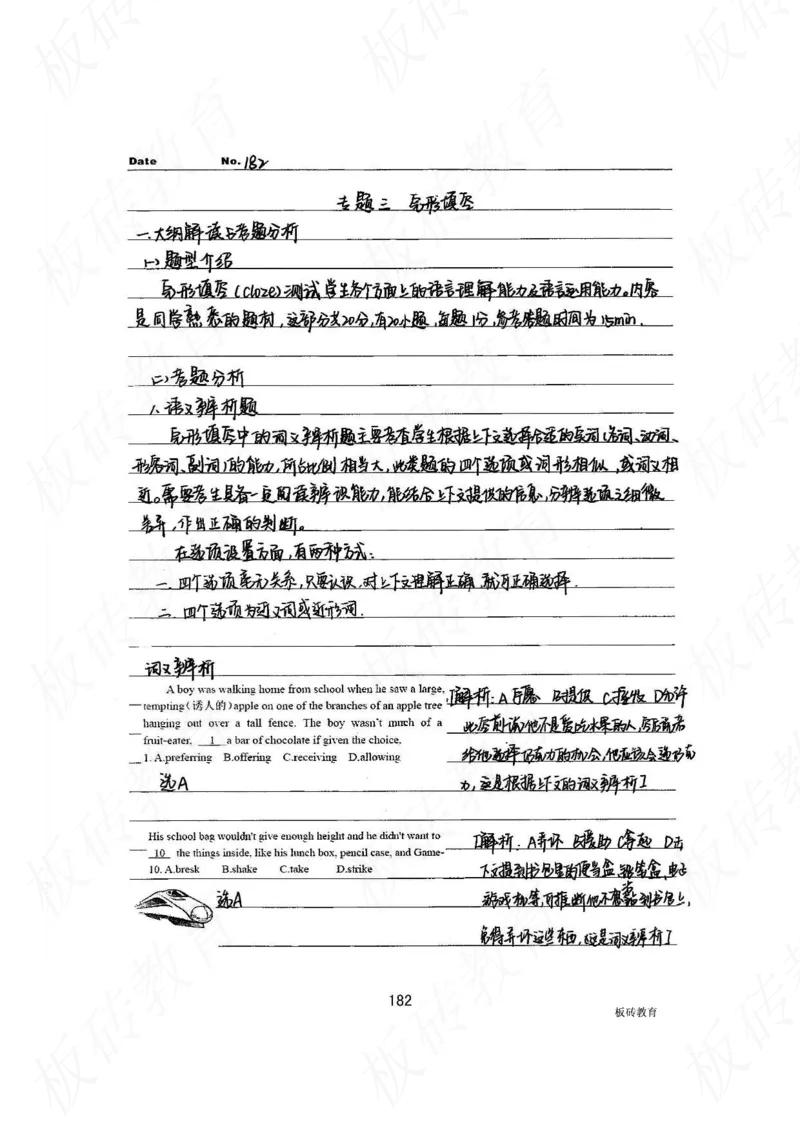 Date No. 182
专题三 完形填空
一、大纲解读与考题分析
(一)题型介绍
完形填空(cloze)测试学生各个方面上的语言理解能力及语言运用能力。内容
是同学熟悉的题材,这部分共20分,有20小题,每题1分,参考答题时间为15min.
(二)考题分析
1、语义辨析题
完形填空中的词义辨析题主要考查学生根据上下文选择合适的实词(名词、动词、
形容词、副词)的能力,所占比例相当大,此类题的四个选项或词形相似,或词义相
近。需要考生具备一定的阅读辨识能力,能结合上下文提供的信息,分辨选项之细微
差异,作出正确的判断。
在选项设置方面,有两种方式:
一.四个选项毫无关系,只要认识,对上下文理解正确就可正确选择.
二.四个选项为近义词或近形词.
词义辨析
A boy was walking home from school when he saw a large,
tempting(诱人的)apple on one of the branches of an apple tree
hanging out over a tall fence. The boy wasn't much of a
fruit-eater, 1 a bar of chocolate if given the choice.
1. A.preferring B.offering C.receiving D.allowing
选A
[解析: A宁愿 B提供 C接收 D允许
此空前说他不是爱吃水果的人,空后有若
给他选择巧克力的机会,他应该会选巧克
力,这是根据上下文的词义辨析]
His school bag wouldn't give enough height and he didn't want to
10 the things inside, like his lunch box, pencil case, and Game-
10. A.bresk B.shake C.take D.strike
选A
[解析: A弄坏 B援助 C拿起 D击
下文提到书包里的便当盒,铅笔盒,电子
游戏机等,可推断他不想站到书包上,
免得弄坏这些东西,这是词义辨析]
182
板砖教育